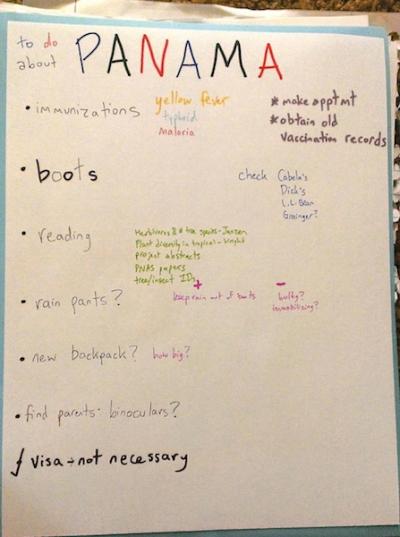 to do about PANAMA
• immunizations yellow fever * make apptmt
typhoid * obtain old
malaria vaccination records
• boots check Cabela's
Dick's
L.L. Bean
Grainger?
• reading Herbivores & # tree species - Janzen
Plant diversity in tropical - Wright
project abstracts
PNAS papers
tree/insect IDs
+ -
• rain pants? keep rain out of boots bulky?
• new backpack? how big?
• find parents' binoculars?
Visa - not necessary